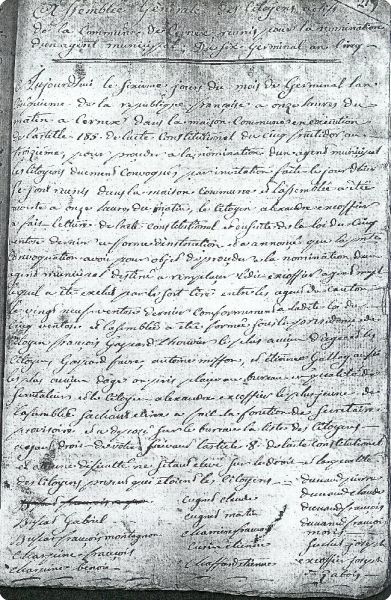 Assemblée Générale des Citoyens actifs
de la Commune de Cernex réunis pour la nomination
d'un agent municipal, Du six Germinal an cinq
Aujourd'hui le sixieme jour du mois de Germinal l'an
cinquieme de la republique française a onze heures du
matin a Cernex dans la maison Commune en execution
de l'acte Constitutionel du cinq fructidor an
troizieme, pour proceder a la nomination d'un agent municipal
les Citoyens duement Convoqués, par invitation faite
se sont reunis dans la maison Commune et l'assemblée a été
ouverte a onze heures du matin, le Citoyen alexandre excoffier
a fait lecture de l'acte constitutionel et ensuite de la loi du cinq
ventose dernier en forme d'instruction et a annoncé que la
Convocation avoit pour objet de proceder a la nomination d'un
agent municipal destiné a remplacer excoffier agent
lequel a été exclus par le sort tiré entre les agents du canton
le vingt neuf ventose dernier Conformement a la dite loi du
cinq ventose et l'assemblée a été formée sous la presidence du
Citoyen françois Gaspard thouvier le plus ancien d'age et les
Citoyens Gaspard faivre, et etienne Galley aussi
les plus anciens d'age ont pris place au bureau en qualité de
Scrutateurs et le Citoyen alexandre excoffier le plus jeune de
l'assemblée sachant ecrire a fait la fonction de Secretaire
provisoire et a deposé sur le bureau la liste des Citoyens
ayant droit de voter suivant l'article 8 de l'acte Constitutionel
et aucune difficulté ne s'etant elevé sur le droit et la qualité
des Citoyens presents que etoient les Citoyens
Busat Gabriel
Busat françois montagnon
Chamine françois
Chamine benoit
Cugnet claude
Cugnet matie
Chamine françois
Cusin etienne
Chaffard etienne
dunand pierre
dunand claude
dunand françois
dunand françois
moris
joseph
excoffier joseph